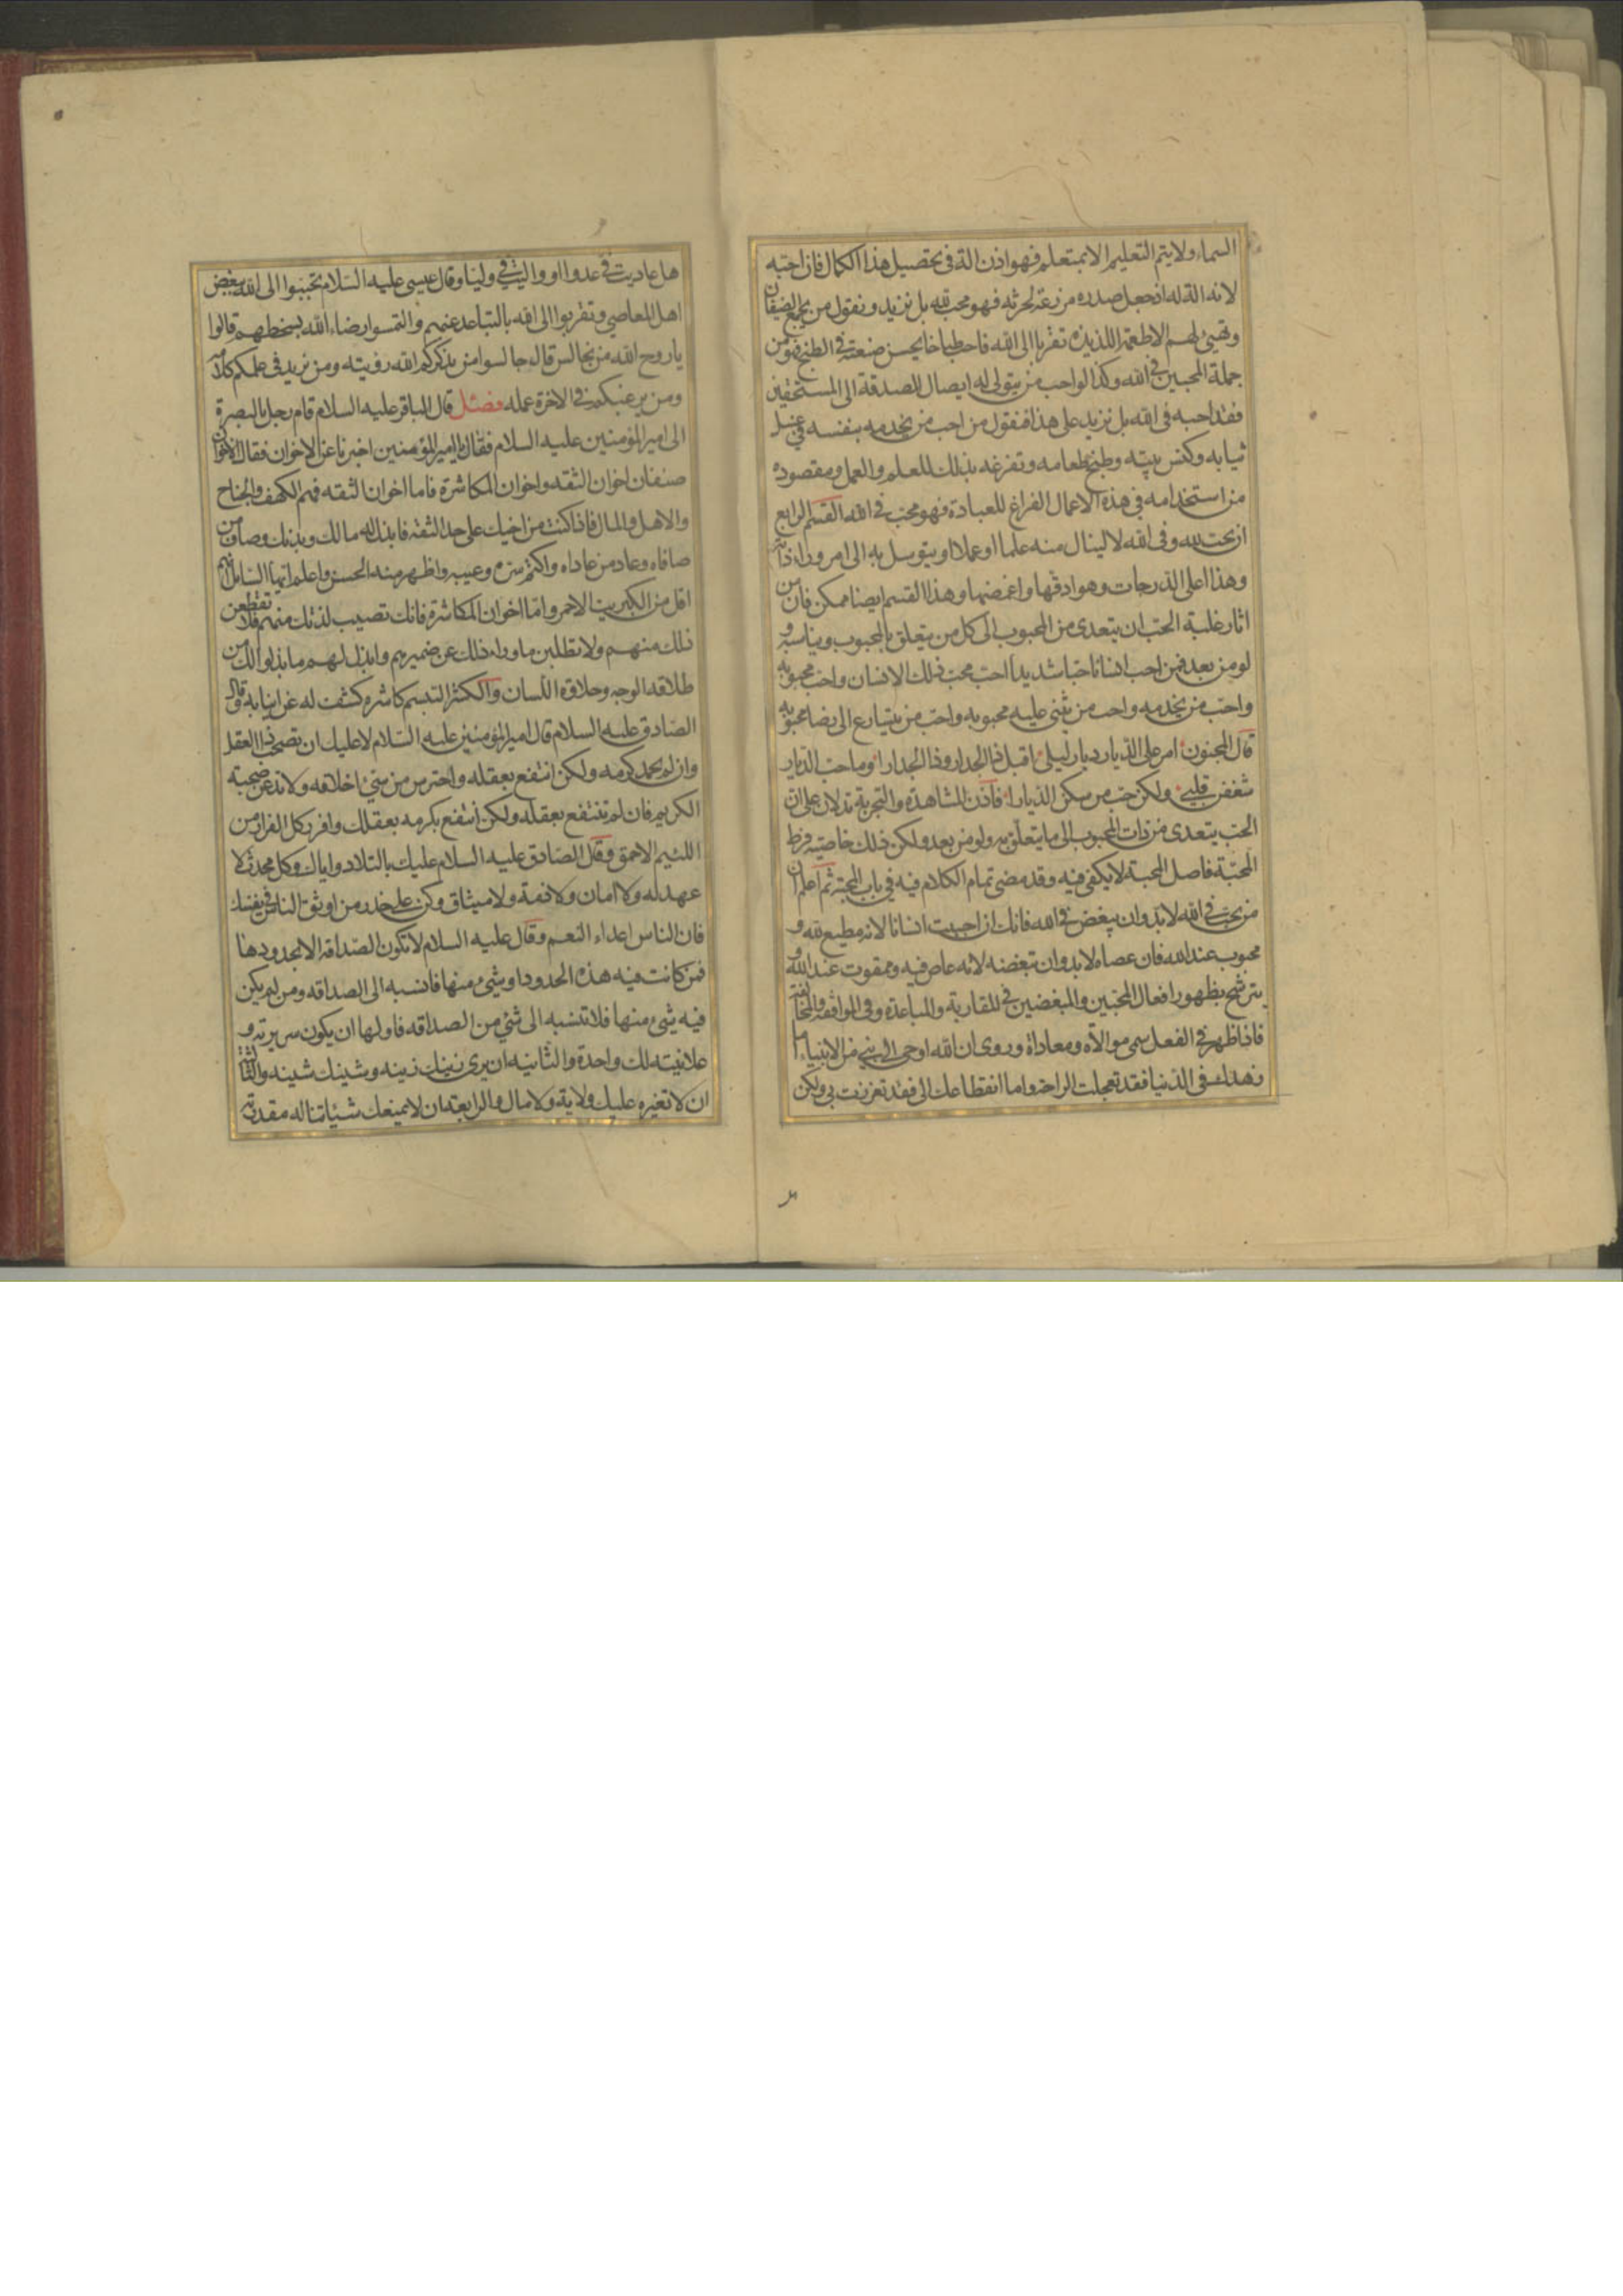 السماء ولا يتم التعليم الا بمتعلم فهو اذن الة فى تحصيل هذا الكمال فان احبه
لانه الة له اذ جعل صدره مزرعة لحرثه فهو محب لله بل نزيد ونقول من يجمع الضيفان
وتهيئ لهم الاطعمة اللذيذة تقربا الى الله فاحب طباخا يحسن صنعته فى الطبخ فهو من
جملة المحبين فى الله وكذا لو احب من يتولى له ايصال الصدقة الى المستحقين
فقد احبه فى الله بل نزيد على هذا فنقول من احب من يخدمه بنفسه فى غسل
ثيابه وكنس بيته وطبخ طعامه وتفرغه بذلك للعلم والعمل ومقصوده
من استخدامه فى هذه الاعمال الفراغ للعبادة فهو محب فى الله القسم الرابع
ان يحب لله وفى الله لا لينال منه علما او عملا او يتوسل به الى امر وراء ذاته
وهذا اعلى الدرجات وهو ادقها واغمضها وهذا القسم ايضا ممكن فان من
اثار غلبة الحب ان يتعدى من المحبوب الى كل من يتعلق بالمحبوب ويناسبه و
لو من بعد فمن احب انسانا حبا شديدا احب محب ذلك الانسان واحب محبوبه
واحب من يخدمه واحب من يثنى عليه محبوبه واحب من يتسارع الى رضا محبوبه
قال المجنون امر على الديار ديار ليلى اقبل ذا الجدار وذا الجدارا وما حب الديار
شغفن قلبى ولكن حب من سكن الديارا فاذن المشاهدة والتجربة تدلان على ان
الحب يتعدى من ذات المحبوب الى ما يتعلق به ولو من بعد ولكن ذلك خاصية فرط
المحبة فاصل المحبة لا يكفى فيه وقد مضى تمام الكلام فيه فى باب المحبة ثم اعلم ان
من يحب فى الله لا بد وان يبغض فى الله فانك ان احببت انسانا لانه مطيع لله و
محبوب عند الله فان عصاه لا بد وان تبغضه لانه عاص فيه وممقوت عند الله و
يترشح بظهور افعال المحبين والمبغضين فى المقاربة والمباعدة وفى الموافقة والمخالفة
فاذا ظهر فى الفعل سمى موالاة ومعاداة وروى ان الله اوحى الى نبى من الانبياء اما
زهدك فى الدنيا فقد تعجلت الراحة واما انقطاعك الى فقد تعززت بى ولكن
هل عاديت فى عدوا او واليت فى وليا وقال عيسى عليه السلام تحببوا الى الله ببغض
اهل المعاصى وتقربوا الى الله بالتباعد عنهم والتمسوا رضاء الله بسخطهم قالوا
يا روح الله من نجالس قال جالسوا من يذكركم الله رؤيته ومن نزيد فى علمكم كلامه
ومن يرغبكم فى الاخرة عمله فصل قال الباقر عليه السلام قام رجل بالبصرة
الى امير المؤمنين عليه السلام فقال يا امير المؤمنين اخبرنا عن الاخوان فقال الاخوان
صنفان اخوان الثقه واخوان المكاشرة فاما اخوان الثقه فهم الكهف والجناح
والاهل والمال فاذا كنت من اخيك على حد الثقة فابذل له مالك وبدنك وصاف من
صافاه وعاد من عاداه واكتم سره وعيبه واظهر منه الحسن واعلم ايها السائل انهم
اقل من الكبريت الاحمر واما اخوان المكاشرة فانك تصيب لذتك منهم فلا تقطعن
ذلك منهم ولا تطلبن ما وراء ذلك عن ضميرهم وابذل لهم ما بذلوا لك من
طلاقه الوجه وحلاوة اللسان والكشر التبسم كاشره كشف له عن انيابه وقال
الصادق عليه السلام قال امير المؤمنين عليه السلام لا عليك ان تصحب ذا العقل
وان لم تحمد كرمه ولكن انتفع بعقله واحترس من سيئ اخلاقه ولا تدعن صحبة
الكريم فان لم تنتفع بعقله ولكن انتفع بكرمه بعقلك وافرر كل الفرار من
اللئيم الاحمق وقال الصادق عليه السلام عليك بالتلاد واياك وكل محدث لا
عهد له ولا امان ولا ذمة ولا ميثاق وكن على حذر من اوثق الناس فى نفسك
فان الناس اعداء النعم وقال عليه السلام لا تكون الصداقة الا بحدودها
فمن كانت فيه هذه الحدود او شئ منها فانسبه الى الصداقه ومن لم يكن
فيه شئ منها فلا تنسبه الى شئ من الصداقه فاولها ان يكون سريرته و
علانيته لك واحدة والثانيه ان يرى زينك زينه وشينك شينه والثالثة
ان لا تغيره عليك ولاية ولا مال والرابعة ان لا يمنعك شيئا تناله مقدرته